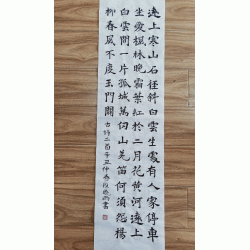 遠上寒山石徑斜白雲生處有人家停車
坐愛楓林晚霜葉紅於二月花黃河遠上
白雲間一片孤城萬仞山羌笛何須怨楊
柳春風不度玉門關
古詩二首辛丑仲春書